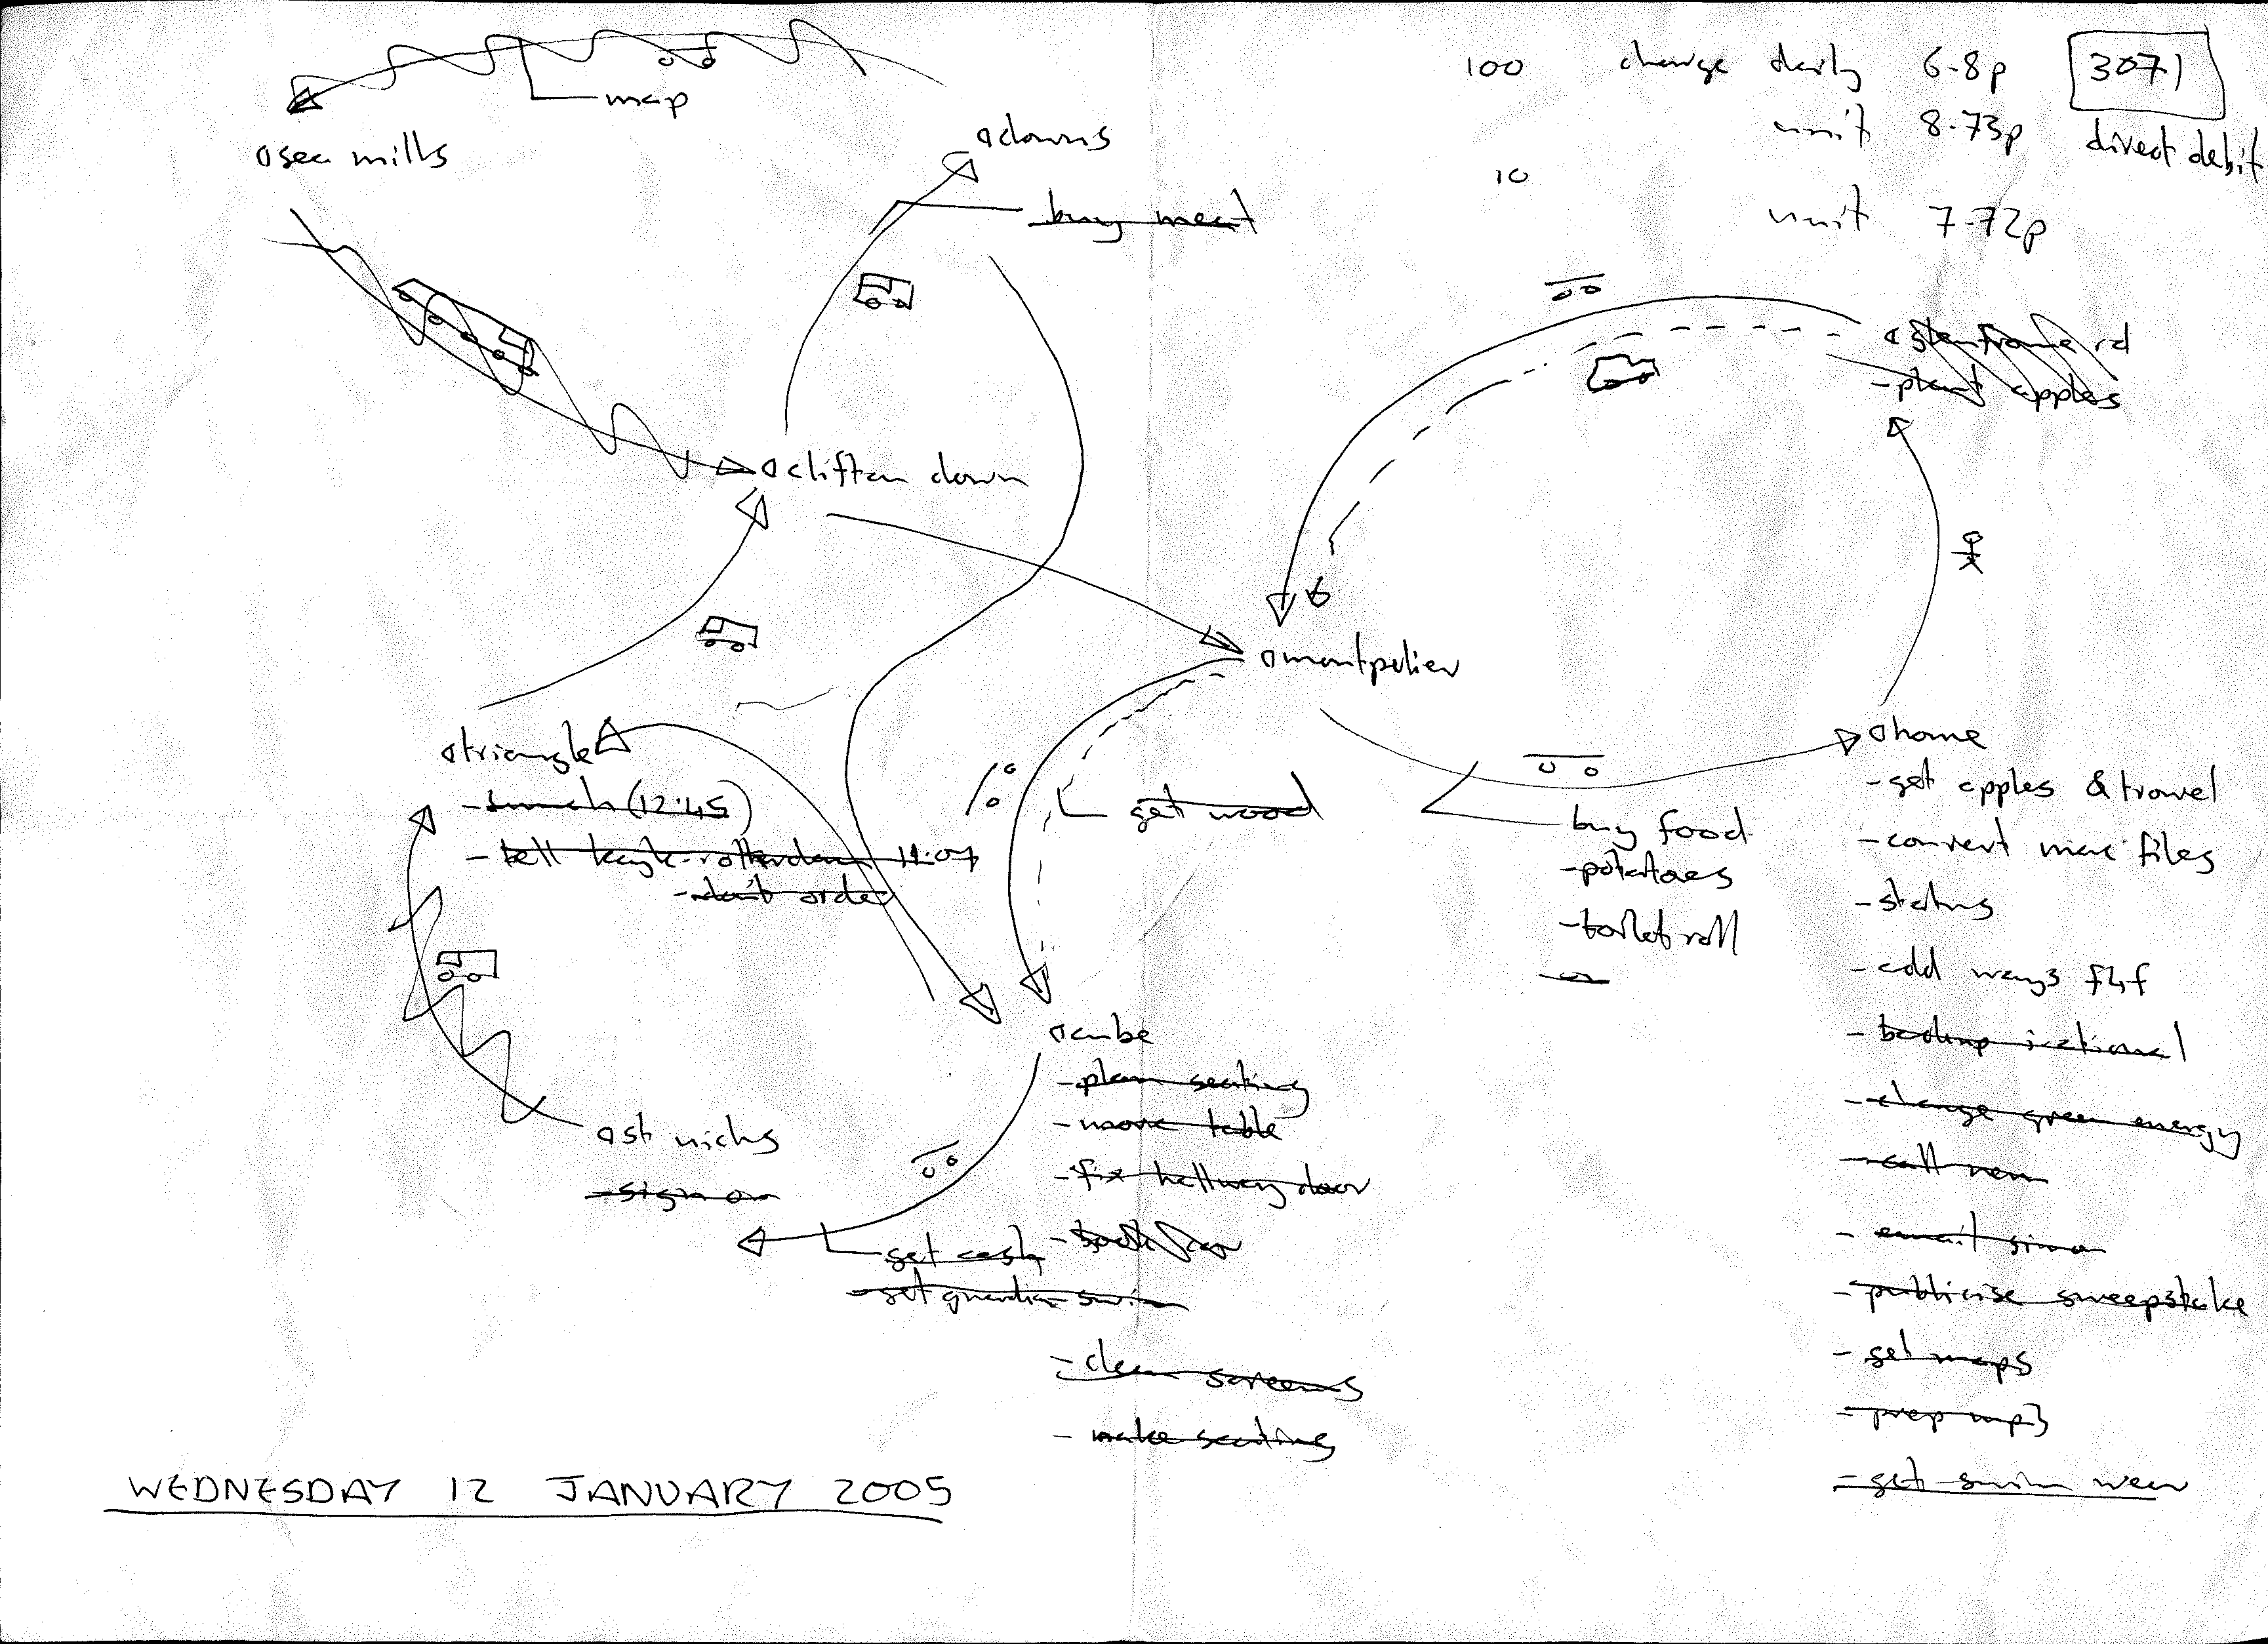 100 charge daily 6.8p 3071
unit 8.73p direct debit
10
unit 7.72p
map
sea mills
downs
buy meat
rd
- plant apples
clifton down
montpelier
triangle
- lunch (12:45)
- tell kayle rotterdam 11:07
- don't order
get wood
home
- get apples & trowel
- convert mac files
- status
- add ways f4f
- change green energy
- email simon
- publicise sweepstake
- get maps
- prep mp3
- get swim wear
buy food
- potatoes
- toilet roll
cube
- plan seating
- move table
- fix hallway door
- clean screens
- make seating
st nichs
- sign on
get cash
- get guardian swim
WEDNESDAY 12 JANUARY 2005